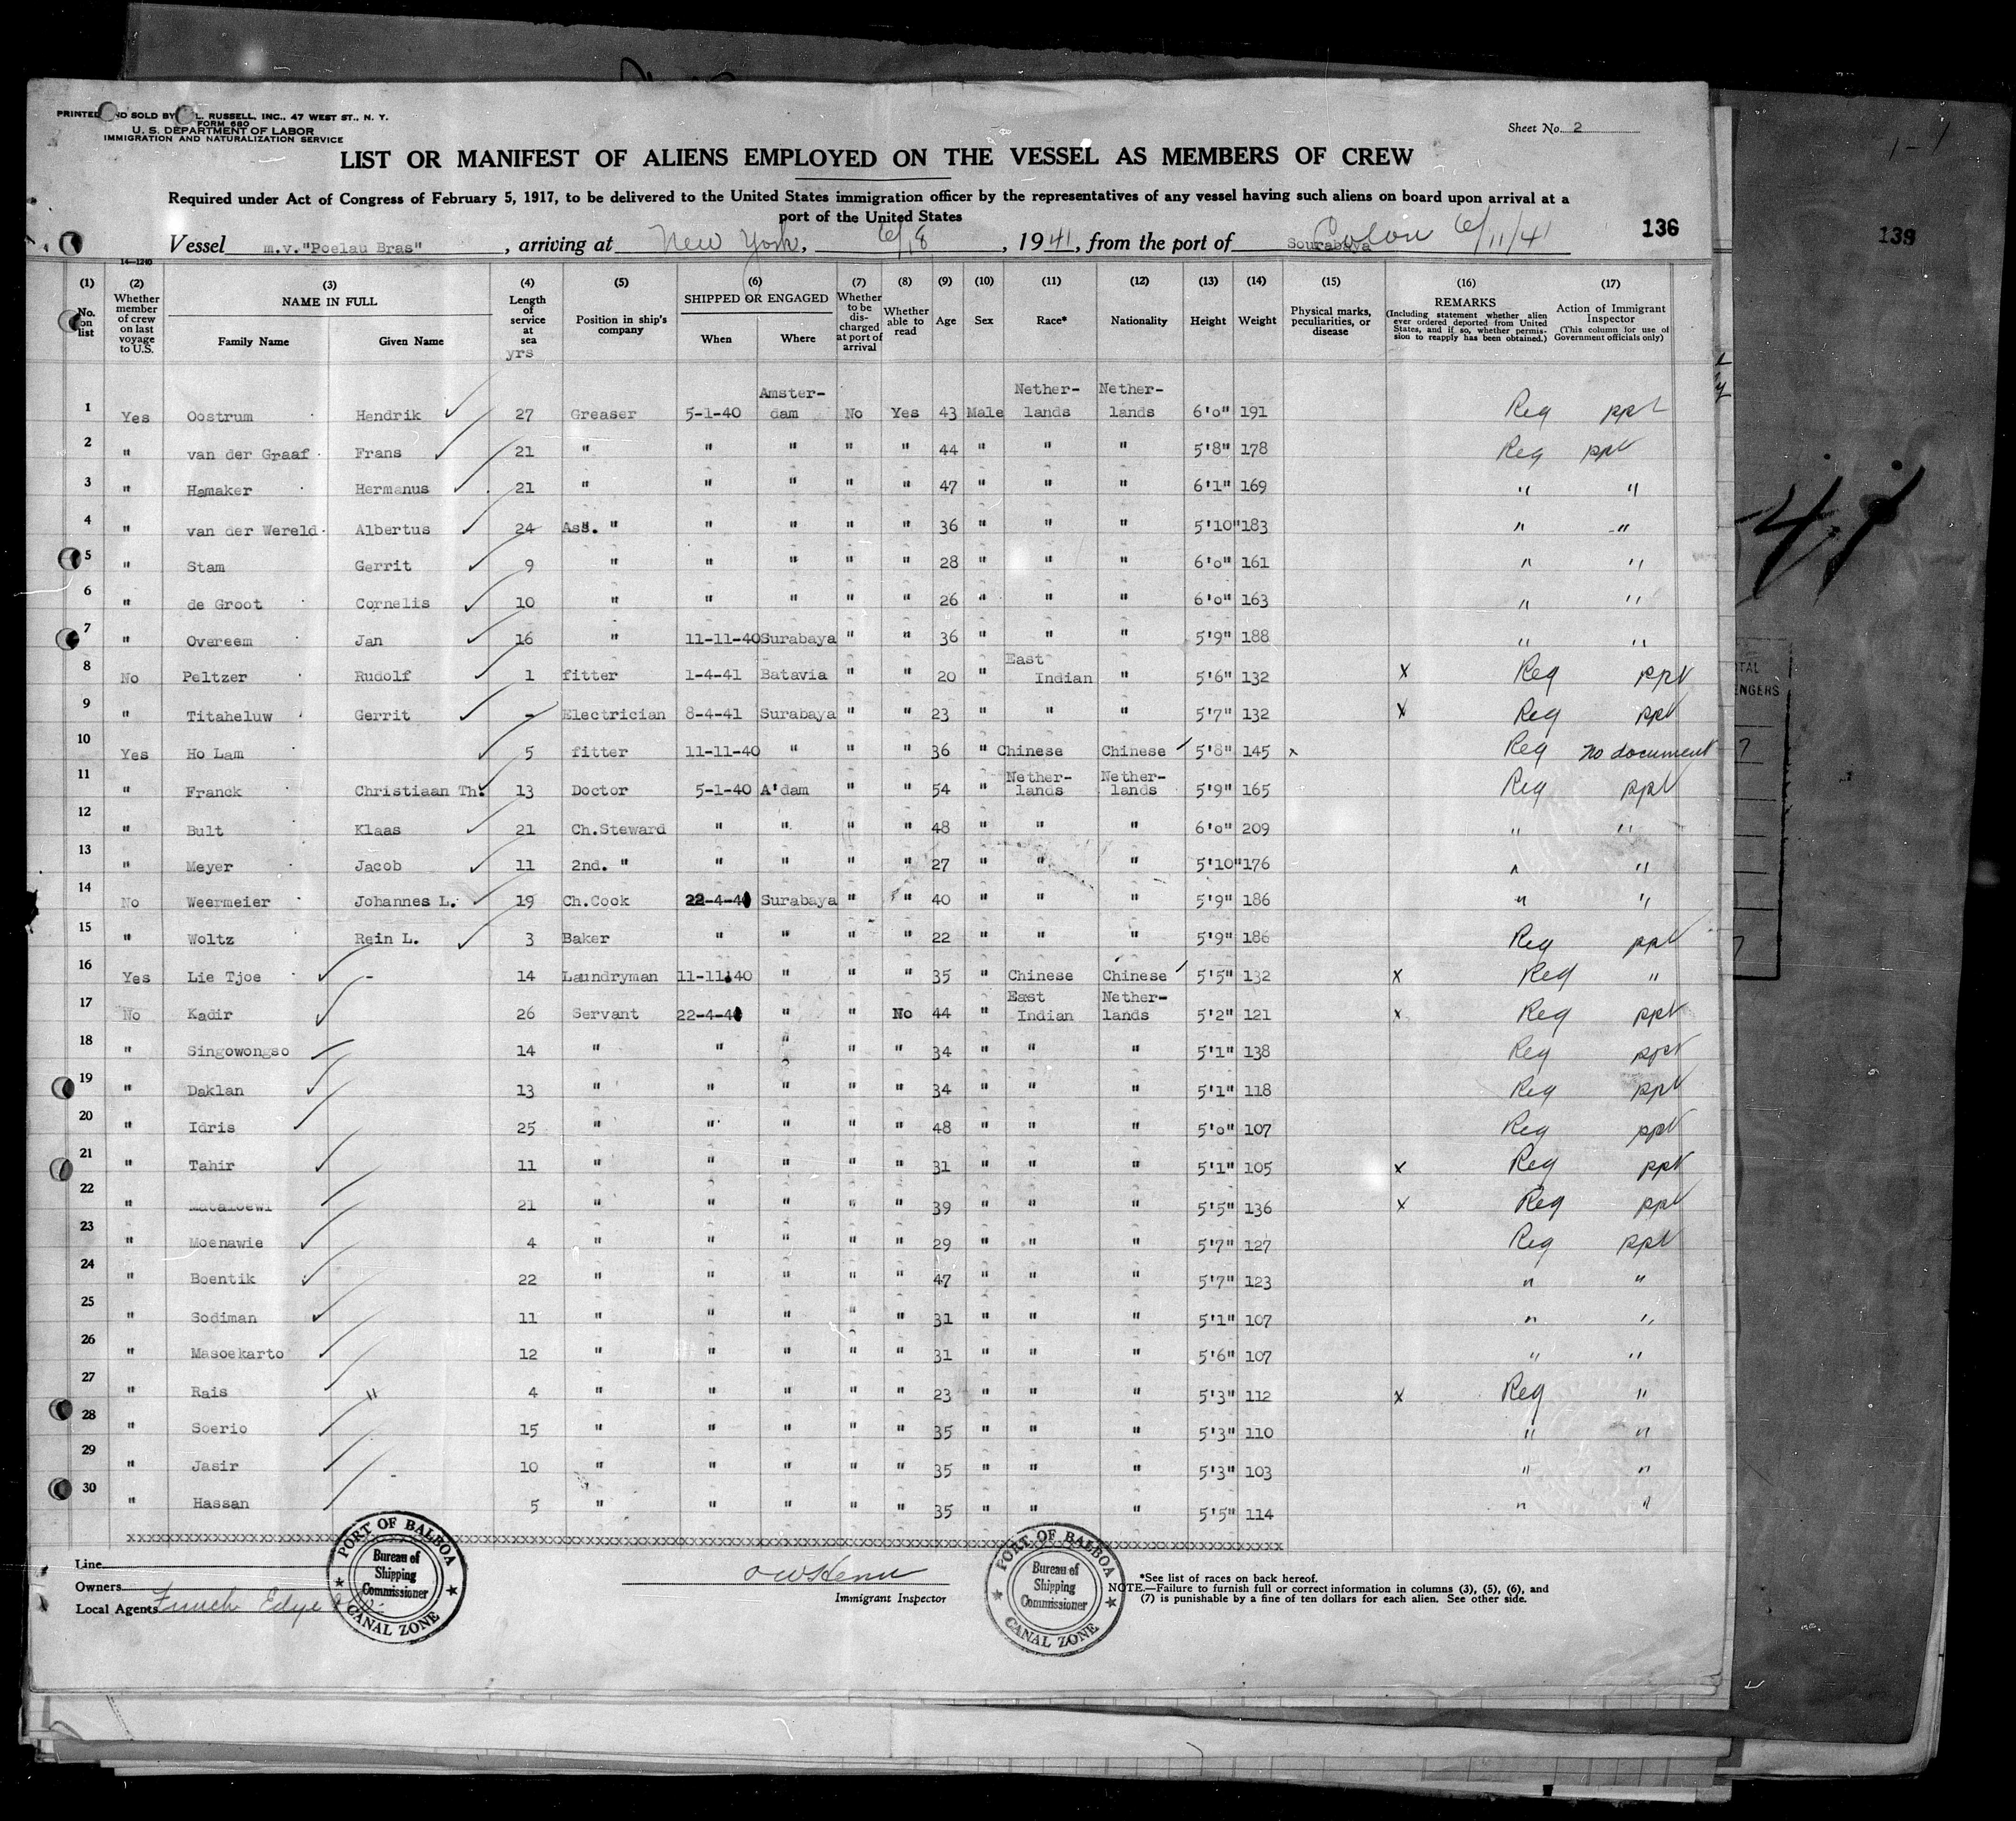 PRINTED AND SOLD BY L. RUSSELL, INC., 47 WEST ST., N. Y.
FORM 680
U. S. DEPARTMENT OF LABOR
IMMIGRATION AND NATURALIZATION SERVICE
Sheet No. 2
LIST OR MANIFEST OF ALIENS EMPLOYED ON THE VESSEL AS MEMBERS OF CREW
Required under Act of Congress of February 5, 1917, to be delivered to the United States immigration officer by the representatives of any vessel having such aliens on board upon arrival at a
port of the United States
136
139
Vessel m.v."Poelau Bras", arriving at New York, 6/18, 1941, from the port of Sourabaya Colon 6/11/41
14—1240
(1) No. on list
(2) Whether member of crew on last voyage to U.S.
(3) NAME IN FULL Family Name Given Name
(4) Length of service at sea yrs
(5) Position in ship's company
(6) SHIPPED OR ENGAGED When Where
(7) Whether to be discharged at port of arrival
(8) Whether able to read
(9) Age
(10) Sex
(11) Race*
(12) Nationality
(13) Height
(14) Weight
(15) Physical marks, peculiarities, or disease
(16) REMARKS (Including statement whether alien ever ordered deported from United States, and if so, whether permission to reapply has been obtained.)
(17) Action of Immigrant Inspector (This column for use of Government officials only)
1 Yes Oostrum Hendrik 27 Greaser 5-1-40 Amster-dam No Yes 43 Male Nether-lands Nether-lands 6'0" 191 Reg ppt
2 " van der Graaf Frans 21 " " " " " 44 " " " 5'8" 178 Reg ppt
3 " Hamaker Hermanus 21 " " " " " 47 " " " 6'1" 169 " "
4 " van der Wereld Albertus 24 Ass. " " " " " 36 " " " 5'10" 183 " "
5 " Stam Gerrit 9 " " " " " 28 " " " 6'0" 161 " "
6 " de Groot Cornelis 10 " " " " " 26 " " " 6'0" 163 " "
7 " Overeem Jan 16 " 11-11-40 Surabaya " " 36 " " " 5'9" 188 " "
8 No Peltzer Rudolf 1 fitter 1-4-41 Batavia " " 20 " East Indian " 5'6" 132 x Reg ppt
9 " Titaheluw Gerrit - Electrician 8-4-41 Surabaya " " 23 " " " 5'7" 132 x Reg ppt
10 Yes Ho Lam 5 fitter 11-11-40 " " " 36 " Chinese Chinese 5'8" 145 x Reg no document
11 " Franck Christiaan Th. 13 Doctor 5-1-40 A'dam " " 54 " Nether-lands Nether-lands 5'9" 165 Reg ppt
12 " Bult Klaas 21 Ch.Steward " " " " 48 " " " 6'0" 209 " "
13 " Meyer Jacob 11 2nd. " " " " " 27 " " " 5'10" 176 " "
14 No Weermeier Johannes L. 19 Ch.Cook 22-4-4 Surabaya " " 40 " " " 5'9" 186 " "
15 " Woltz Rein L. 3 Baker " " " " 22 " " " 5'9" 186 Reg ppt
16 Yes Lie Tjoe - 14 Laundryman 11-11-40 " " " 35 " Chinese Chinese 5'5" 132 x Reg "
17 No Kadir 26 Servant 22-4-4 " " No 44 " East Indian Nether-lands 5'2" 121 x Reg ppt
18 " Singowongso 14 " " " " " 34 " " " 5'1" 138 Reg ppt
19 " Daklan 13 " " " " " 34 " " " 5'1" 118 Reg ppt
20 " Idris 25 " " " " " 48 " " " 5'0" 107 Reg ppt
21 " Tahir 11 " " " " " 31 " " " 5'1" 105 x Reg ppt
22 " Mataloewi 21 " " " " " 39 " " " 5'5" 136 x Reg ppt
23 " Moenawie 4 " " " " " 29 " " " 5'7" 127 Reg ppt
24 " Boentik 22 " " " " " 47 " " " 5'7" 123 " "
25 " Sodiman 11 " " " " " 31 " " " 5'1" 107 " "
26 " Masoekarto 12 " " " " " 31 " " " 5'6" 107 " "
27 " Rais 4 " " " " " 23 " " " 5'3" 112 x Reg "
28 " Soerio 15 " " " " " 35 " " " 5'3" 110 " "
29 " Jasir 10 " " " " " 35 " " " 5'3" 103 " "
30 " Hassan 5 " " " " " 35 " " " 5'5" 114 " "
Line
Owners
Local Agents Funch Edye & Co.
PORT OF BALBOA Bureau of Shipping Commissioner CANAL ZONE
Immigrant Inspector
PORT OF BALBOA Bureau of Shipping Commissioner CANAL ZONE
*See list of races on back hereof.
NOTE.—Failure to furnish full or correct information in columns (3), (5), (6), and
(7) is punishable by a fine of ten dollars for each alien. See other side.